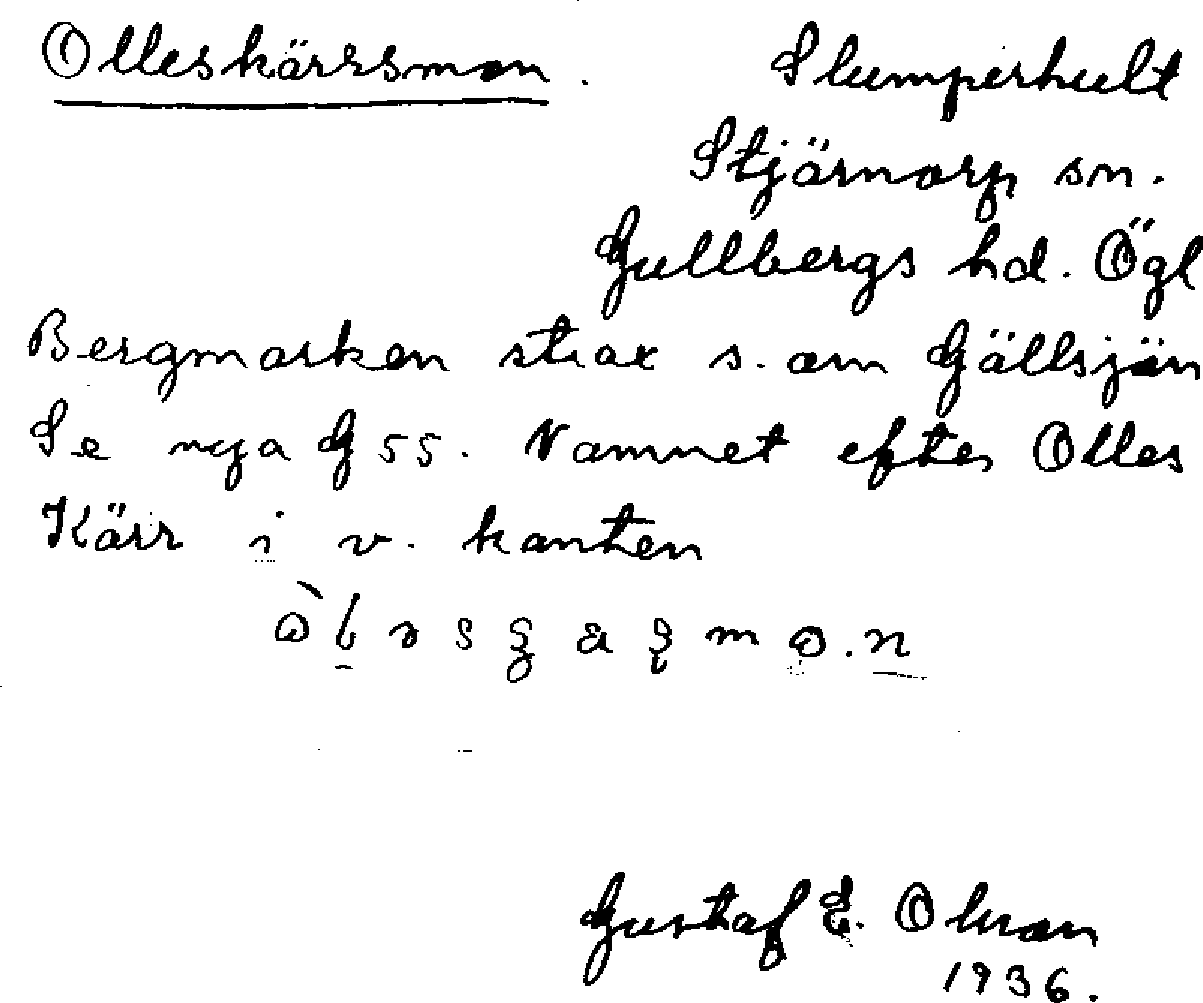 Olleskärrsmon. Slumperhult
Stjärnorp sn.
Gullbergs hd. Ögl
Bergmarken strax s. om Gällsjön
Se nya G 55. Namnet efter Olles
Kärr i v. kanten
Gustaf E. Olson
1936.